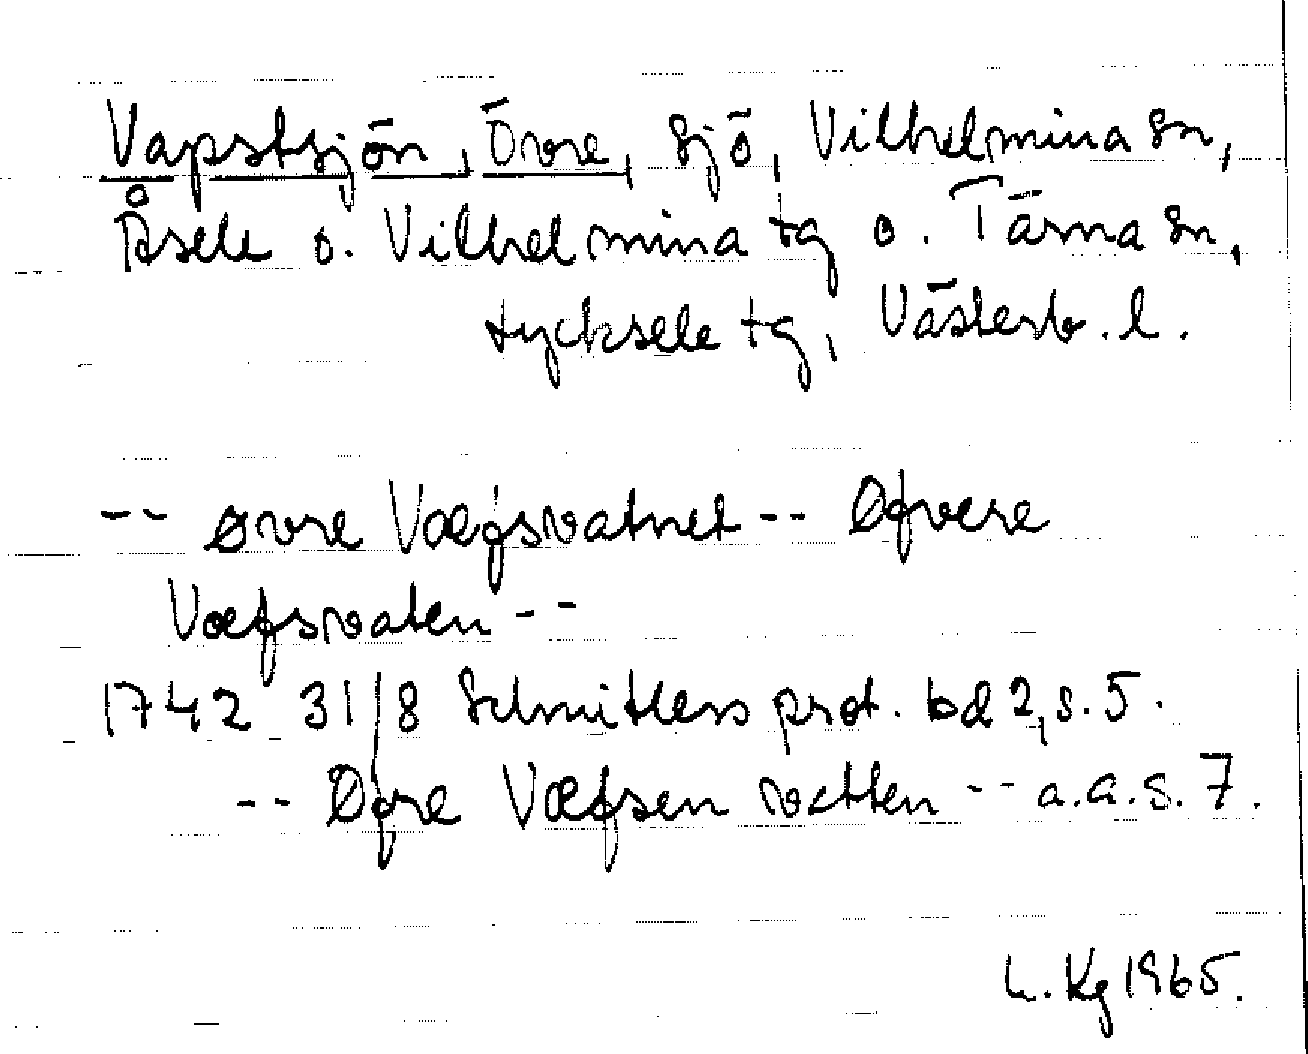 Vapstsjön, Övre, sjö, Vilhelmina sn,
Åsele o. Vilhelmina tg o. Tärna sn,
Lycksele tg, Västerb. l.
-- Øvre Væfsvatnet -- Øfvere
Væfsvaten --
1742 31/8 Schnitlers prot. bd 2, s. 5.
-- Øfre Væfsen vatten -- a.a.s. 7.
L. Kg 1965.